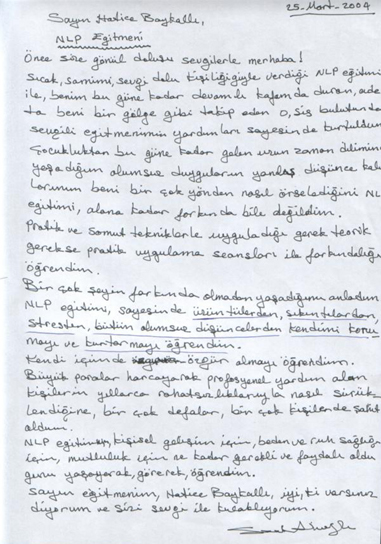 25-Mart-2004
Sayın Hatice Baykallı,
NLP Eğitmeni
Önce size gönül dolusu sevgilerle merhaba!
Sıcak, samimi, sevgi dolu kişiliğiyle verdiği NLP eğitimi
ile, benim bu güne kadar devamlı kafamda duran, ade
ta beni bir gölge gibi takip eden o, sis bulutundan
sevgili eğitmenimin yardımları sayesinde kurtuldum
Çocukluktan bu güne kadar gelen uzun zaman dilimin
yaşadığım olumsuz duyguların yanlış düşünce kalı
larımın beni bir çok yönden nasıl örselediğini NL
eğitimi, alana kadar farkında bile değildim.
Pratik ve somut tekniklerle uyguladığı gerek teorik
gerekse pratik uygulama seansları ile farkındalığı
öğrendim.
Bir çok şeyin farkında olmadan yaşadığımı anladım
NLP eğitimi, sayesinde üzüntülerden, sıkıntılardan,
stresten, bütün olumsuz düşüncelerden kendimi koru
mayı ve kurtarmayı öğrendim.
Kendi içimde özgür olmayı öğrendim.
Büyük paralar harcayarak profosyonel yardım alan
kişilerin yıllarca rahatsızlıklarıyla nasıl sürük
lendiğine, bir çok defalar, bir çok kişilerde şahit
oldum.
NLP eğitimin, kişisel gelişim için, beden ve ruh sağlığı
için, mutluluk için ne kadar gerekli ve faydalı oldu
ğunu yaşayarak, görerek, öğrendim.
Sayın eğitmenim, Hatice Baykallı, iyi, ki varsınız
diyorum ve Sizi sevgi ile kucaklıyorum.